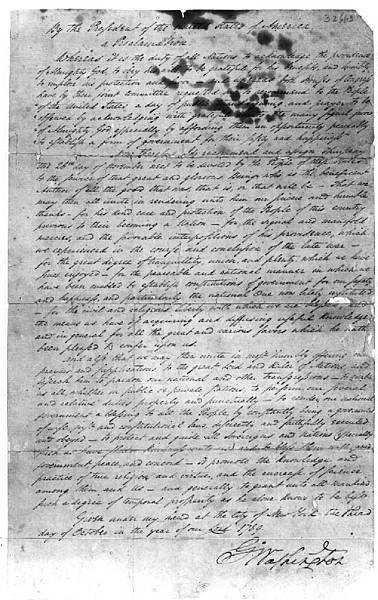 By the President of the United States of America
a Proclamation
Whereas it is the duty of all Nations to acknowledge the providence
of Almighty God, to obey his will, to be grateful for his benefits, and humbly
to implore his protection and favor, and Whereas both Houses of Congress
have by their joint Committee requested me to recommend to the People
of the United States a day of public thanks-giving and prayer to be
observed by acknowledging with grateful hearts the many signal favors
of Almighty God, especially by affording them an opportunity peaceably
to establish a form of government for their safety and happiness.
Now therefore I do recommend and assign Thursday
the 26th day of November next to be devoted by the People of these States
to the service of that great and glorious Being, who is the beneficent
Author of all the good that was, that is, or that will be - That we
may then all unite in rendering unto him our sincere and humble
thanks - for his kind care and protection of the People of this country
previous to their becoming a Nation - for the signal and manifold
mercies, and the favorable interpositions of his providence, which
we experienced in the course and conclusion of the late war -
for the great degree of tranquillity, union, and plenty, which we have
since enjoyed - for the peaceable and rational manner in which we
have been enabled to establish constitutions of government for our safety
and happiness, and particularly the national One now lately instituted
- for the civil and religious liberty with which we are blessed, and
the means we have of acquiring and diffusing useful knowledge
and in general for all the great and various favors which he hath
been pleased to confer upon us.
And also that we may then unite in most humbly offering our
prayers and supplications to the great Lord and Ruler of Nations and
beseech him to pardon our national and other transgressions - to enable
us all, whether in public or private stations, to perform our several
and relative duties properly and punctually - to render our national
government a blessing to all the People, by constantly being a government
of wise, just and constitutional laws, discreetly and faithfully executed
and obeyed - to protect and guide all Sovereigns and Nations (especially
such as have shown kindness unto us) and to bless them with good
government, peace, and concord - To promote the knowledge and
practice of true religion and virtue, and the encrease of science
among them and Us - and generally to grant unto all mankind
such a degree of temporal prosperity as he alone knows to be best.
Given under my hand at the City of New York the third
day of October in the year of our Lord 1789.
Go: Washington